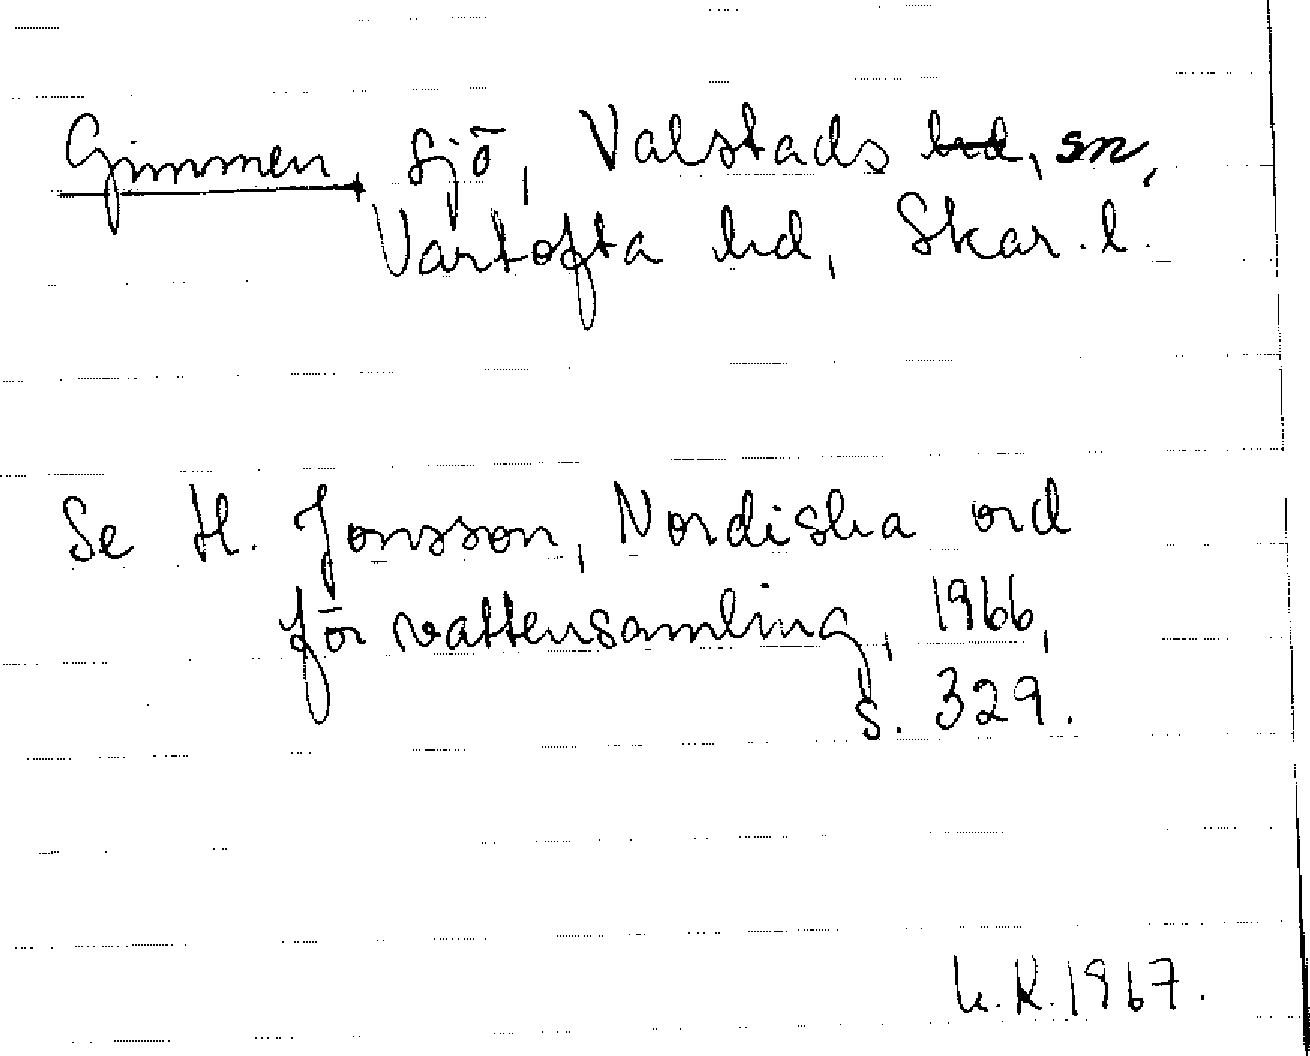 Gimmen sjö, Valstads hd, sn,
Vartofta hd, Skar. l.
Se H. Jonsson, Nordiska ord
för vattensamling, 1966,
s. 329.
K.R. 1967.